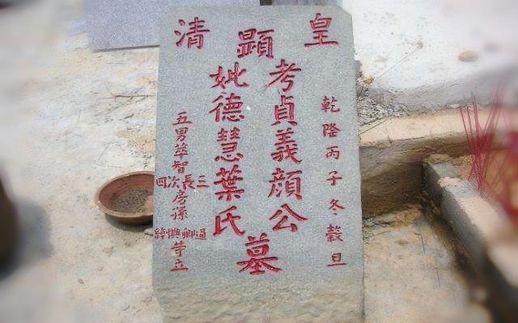 皇清
顯
考貞義顏公
妣德慧葉氏
墓
乾隆丙子冬穀旦
五男華智
三長次四房孫
等立